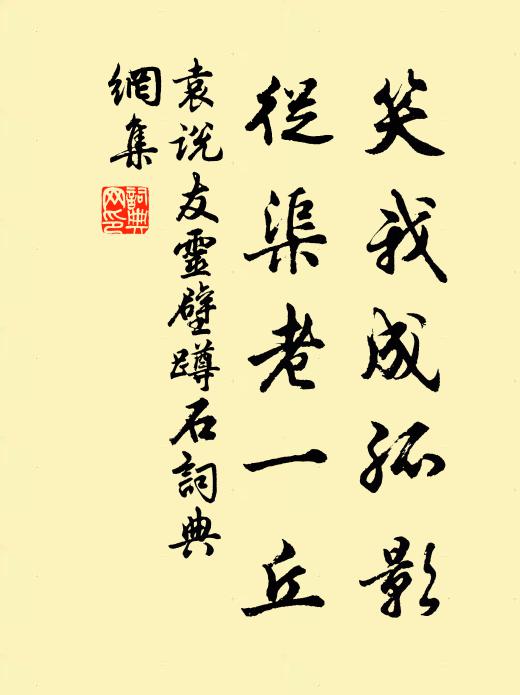 笑我成孤影
從渠老一丘
袁說友靈壁蹲石詞典
網集
詞典
網印